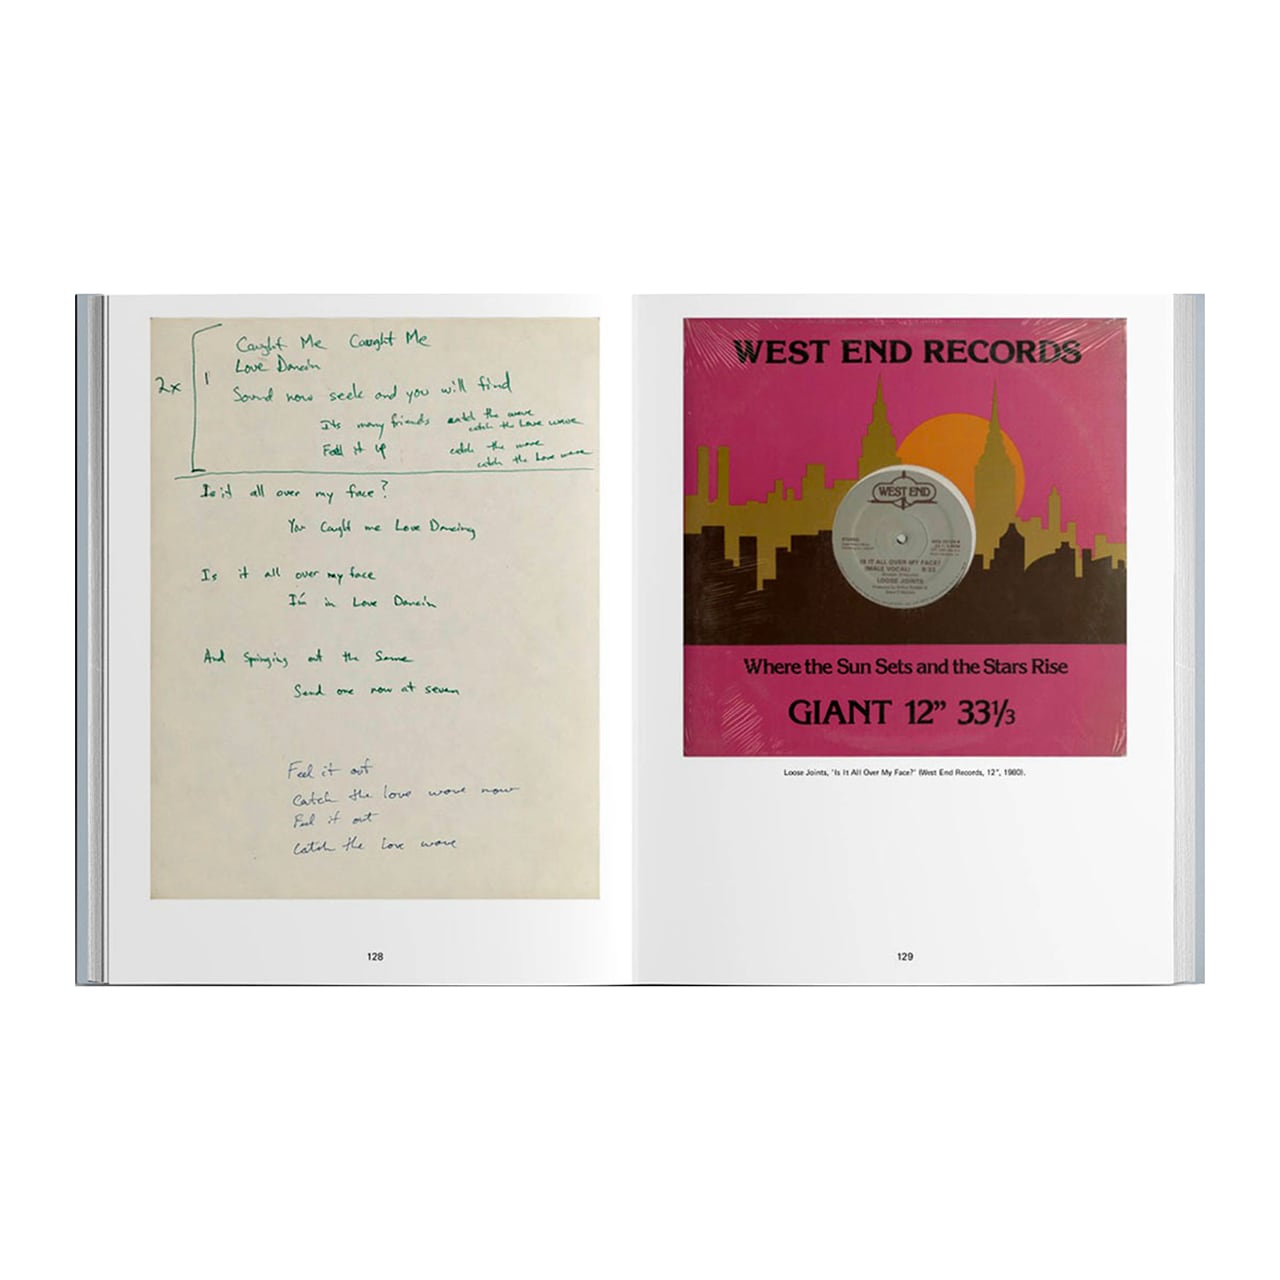 2x
1
Caught Me Caught Me
Love Dancin
Sound now seek and you will find
Its many friends catch the wave
catch the Love wave
Feel it up catch the wave
catch the Love wave
Is it all over my face?
You Caught me Love Dancing
Is it all over my face
I'm in Love Dancin
And Springing out the Same
Send one now at seven
Feel it out
Catch the love wave now
Feel it out
Catch the love wave
128
WEST END RECORDS
WEST END
STEREO
IS IT ALL OVER MY FACE?
(MALE VOCAL) 6:53
LOOSE JOINTS
Where the Sun Sets and the Stars Rise
GIANT 12” 33⅓
Loose Joints, 'Is It All Over My Face?' (West End Records, 12", 1980).
129